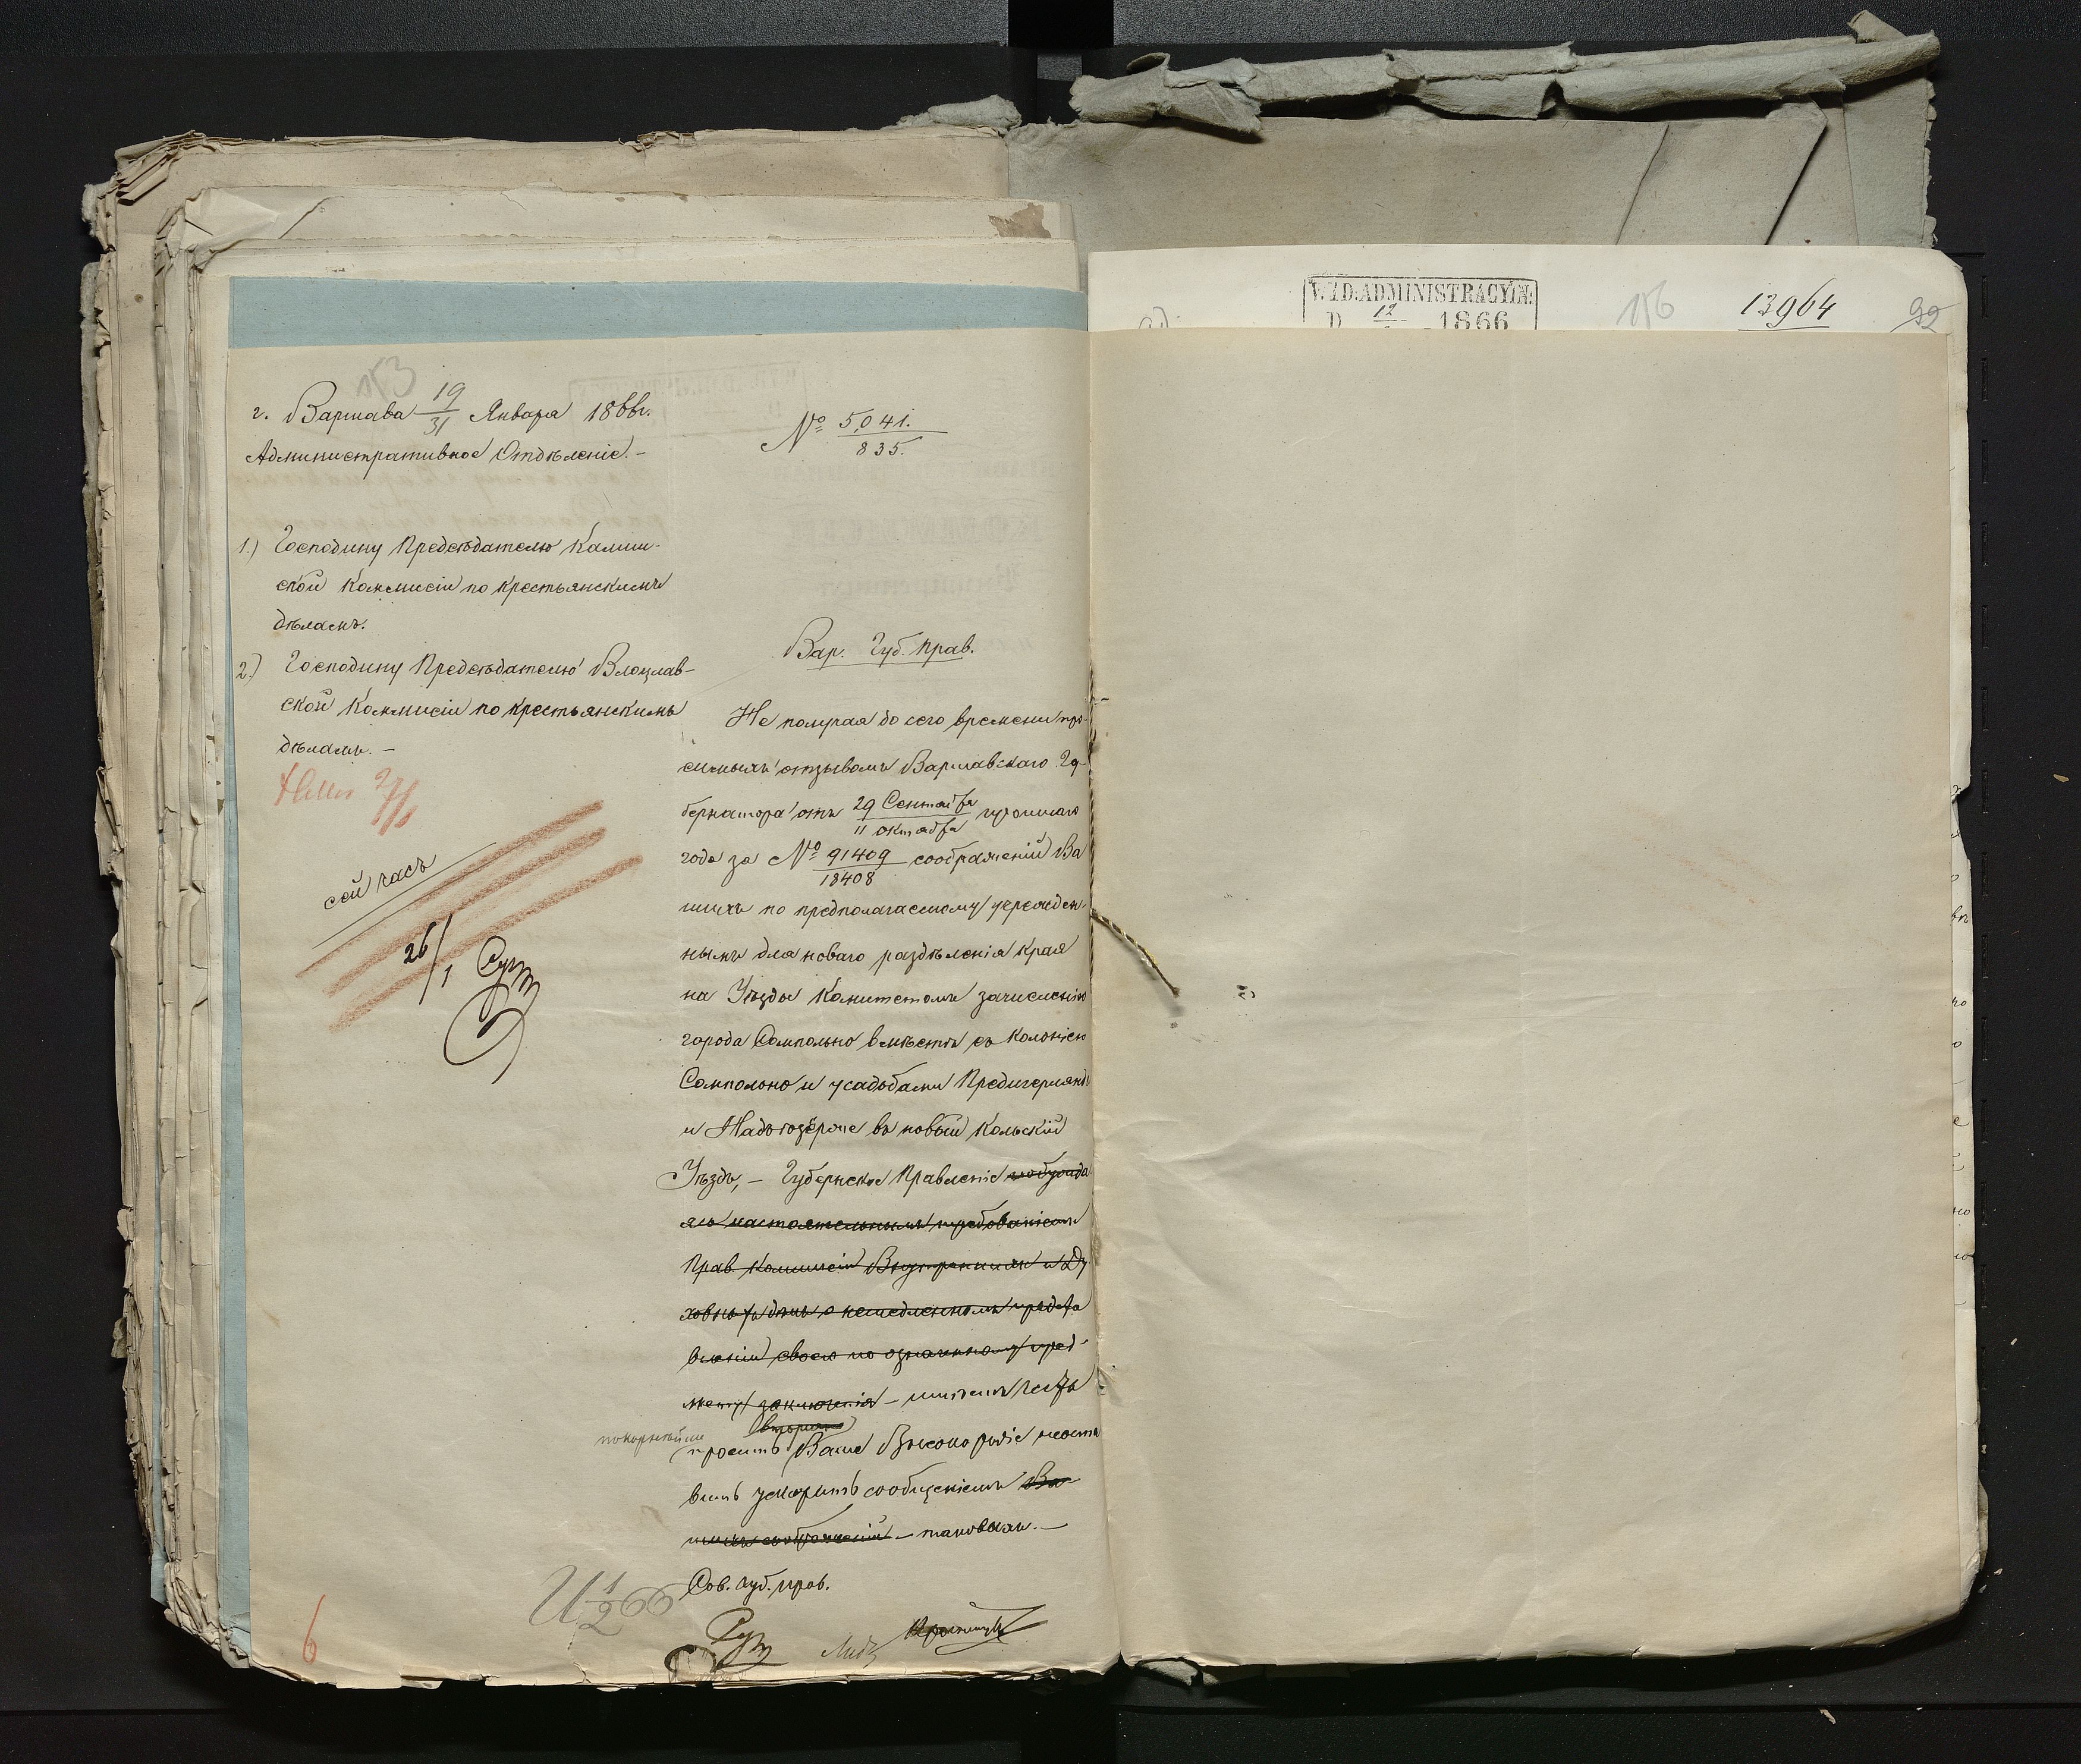 153
г. Варшава 19/31 Января 1866г.
Административное Отдѣленіе.-
№ 5,041./835.
1.) Господину Предсѣдателю Калиш-
ской Коммисіи по крестьянскимъ
дѣламъ.
2.) Господину Предсѣдателю Влоцлав-
ской Коммисіи по крестьянскимъ
дѣламъ. -
сей часъ
26/1
Вар. Губ. Прав.
Не получая до сего времени про-
симыхъ отзывомъ Варшавскаго Гу-
бернатора отъ 29 Сентября/11 октября прошлаго
года за № 91409/18408 соображеній Ва
шихъ по предполагаемому учрежден-
нымъ для новаго раздѣленія края
на Уѣзды Комитетомъ зачисленію
города Сомпольно вмѣстѣ съ Колоніею
Сомпольно и усадьбами
и въ новый Кольскій
Уѣздъ, - Губернское Правленіе побужда
ясь настоятельнымъ требованіемъ
Прав. Коммисіи Внутреннихъ и Ду
ховныхъ дѣлъ о немедленномъ предста
вленіи своего по означенному пред-
мету заключенія - имѣетъ честь
вторично
покорнѣйше
просить Ваше Высокородіе неоста
вить ускорить сообщеніемъ Ва
шихъ соображеній - таковыхъ. -
Сов. губ. прав.
6
W YD. ADMINISTRACYJN.
D 12 1866
156
13964
92